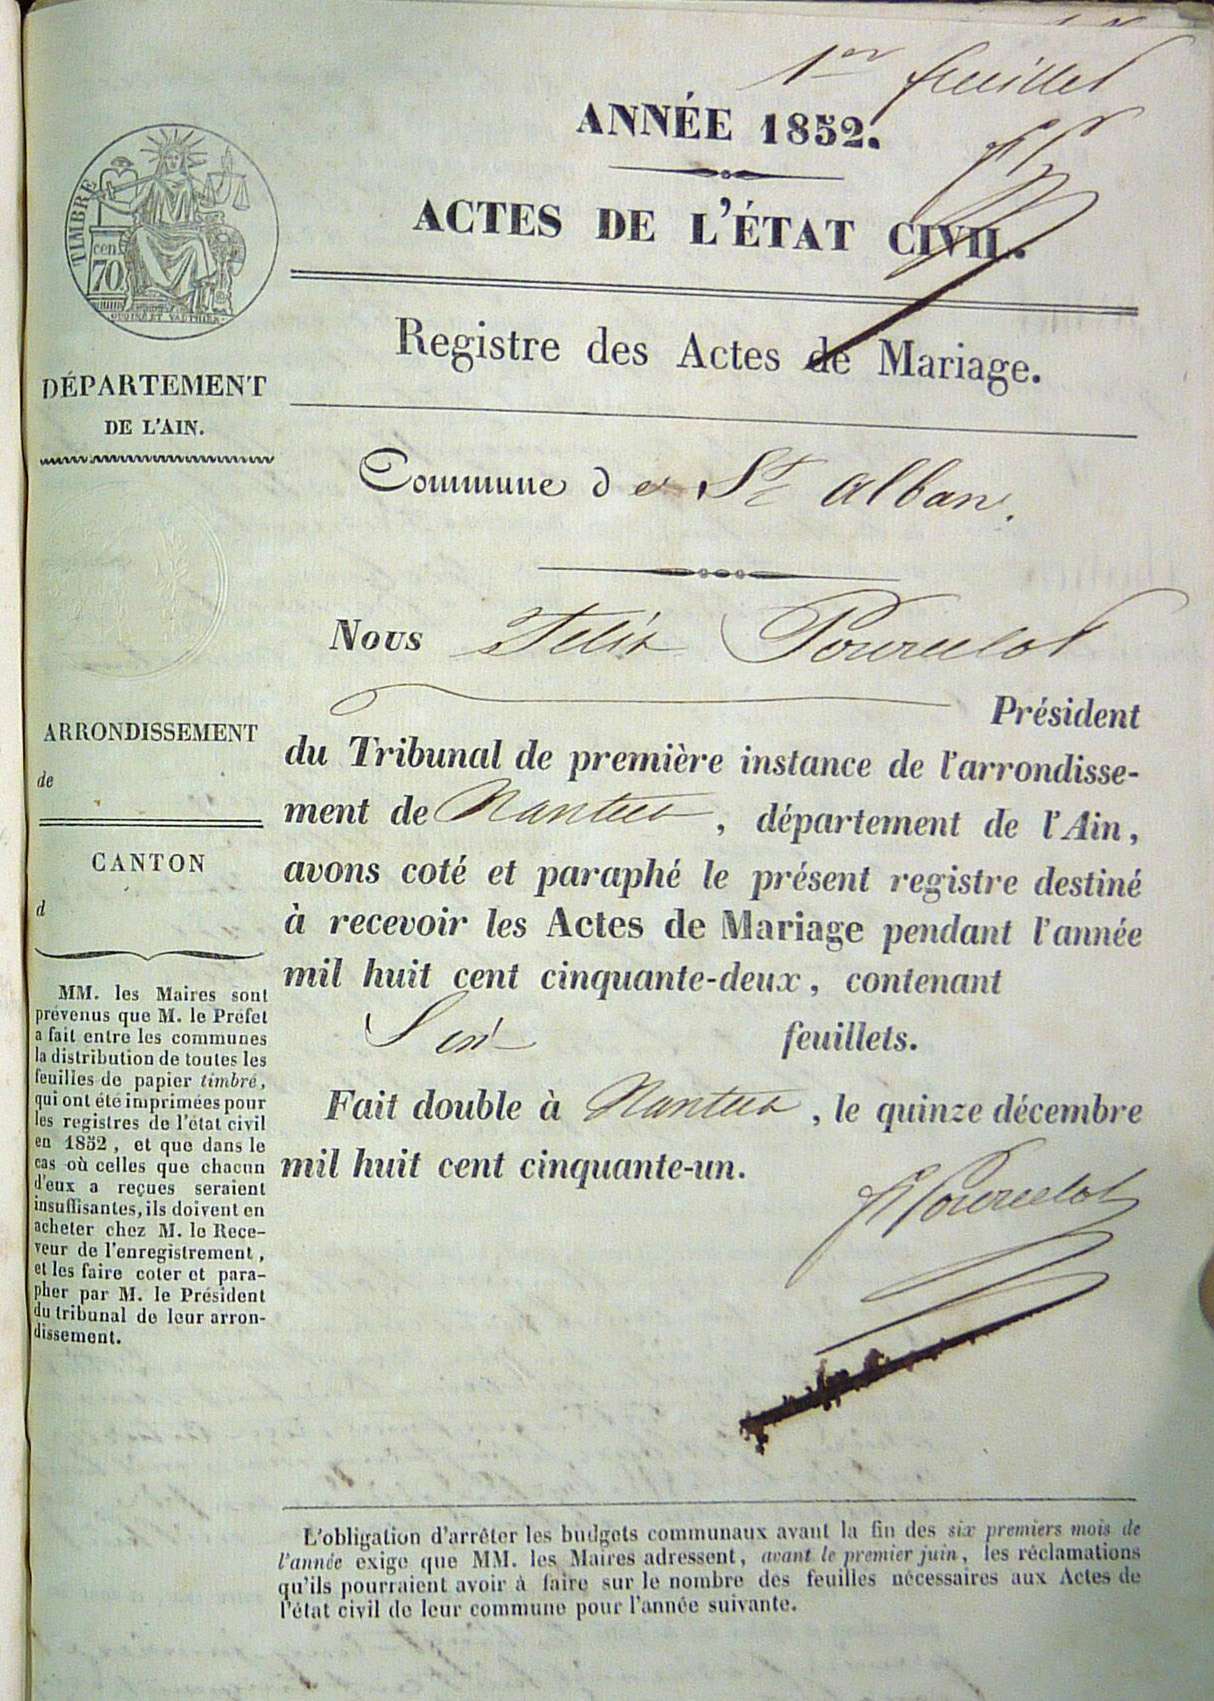 1er feuillet
ANNÉE 1852.
ACTES DE L'ÉTAT CIVIL.
TIMBRE
cen
70
Registre des Actes de Mariage.
DÉPARTEMENT
DE L'AIN.
Commune de St Alban.
Nous Felix Pourcelot
Président
du Tribunal de première instance de l'arrondisse-
ment de Nantua, département de l'Ain,
avons coté et paraphé le présent registre destiné
à recevoir les Actes de Mariage pendant l'année
mil huit cent cinquante-deux, contenant
Six feuillets.
Fait double à Nantua, le quinze décembre
mil huit cent cinquante-un.
F Pourcelot
ARRONDISSEMENT
de
CANTON
d
MM. les Maires sont
prévenus que M. le Préfet
a fait entre les communes
la distribution de toutes les
feuilles de papier timbré,
qui ont été imprimées pour
les registres de l'état civil
en 1852, et que dans le
cas où celles que chacun
d'eux a reçues seraient
insuffisantes, ils doivent en
acheter chez M. le Rece-
veur de l'enregistrement,
et les faire coter et para-
pher par M. le Président
du tribunal de leur arron-
dissement.
L'obligation d'arrêter les budgets communaux avant la fin des six premiers mois de
l'année exige que MM. les Maires adressent, avant le premier juin, les réclamations
qu'ils pourraient avoir à faire sur le nombre des feuilles nécessaires aux Actes de
l'état civil de leur commune pour l'année suivante.